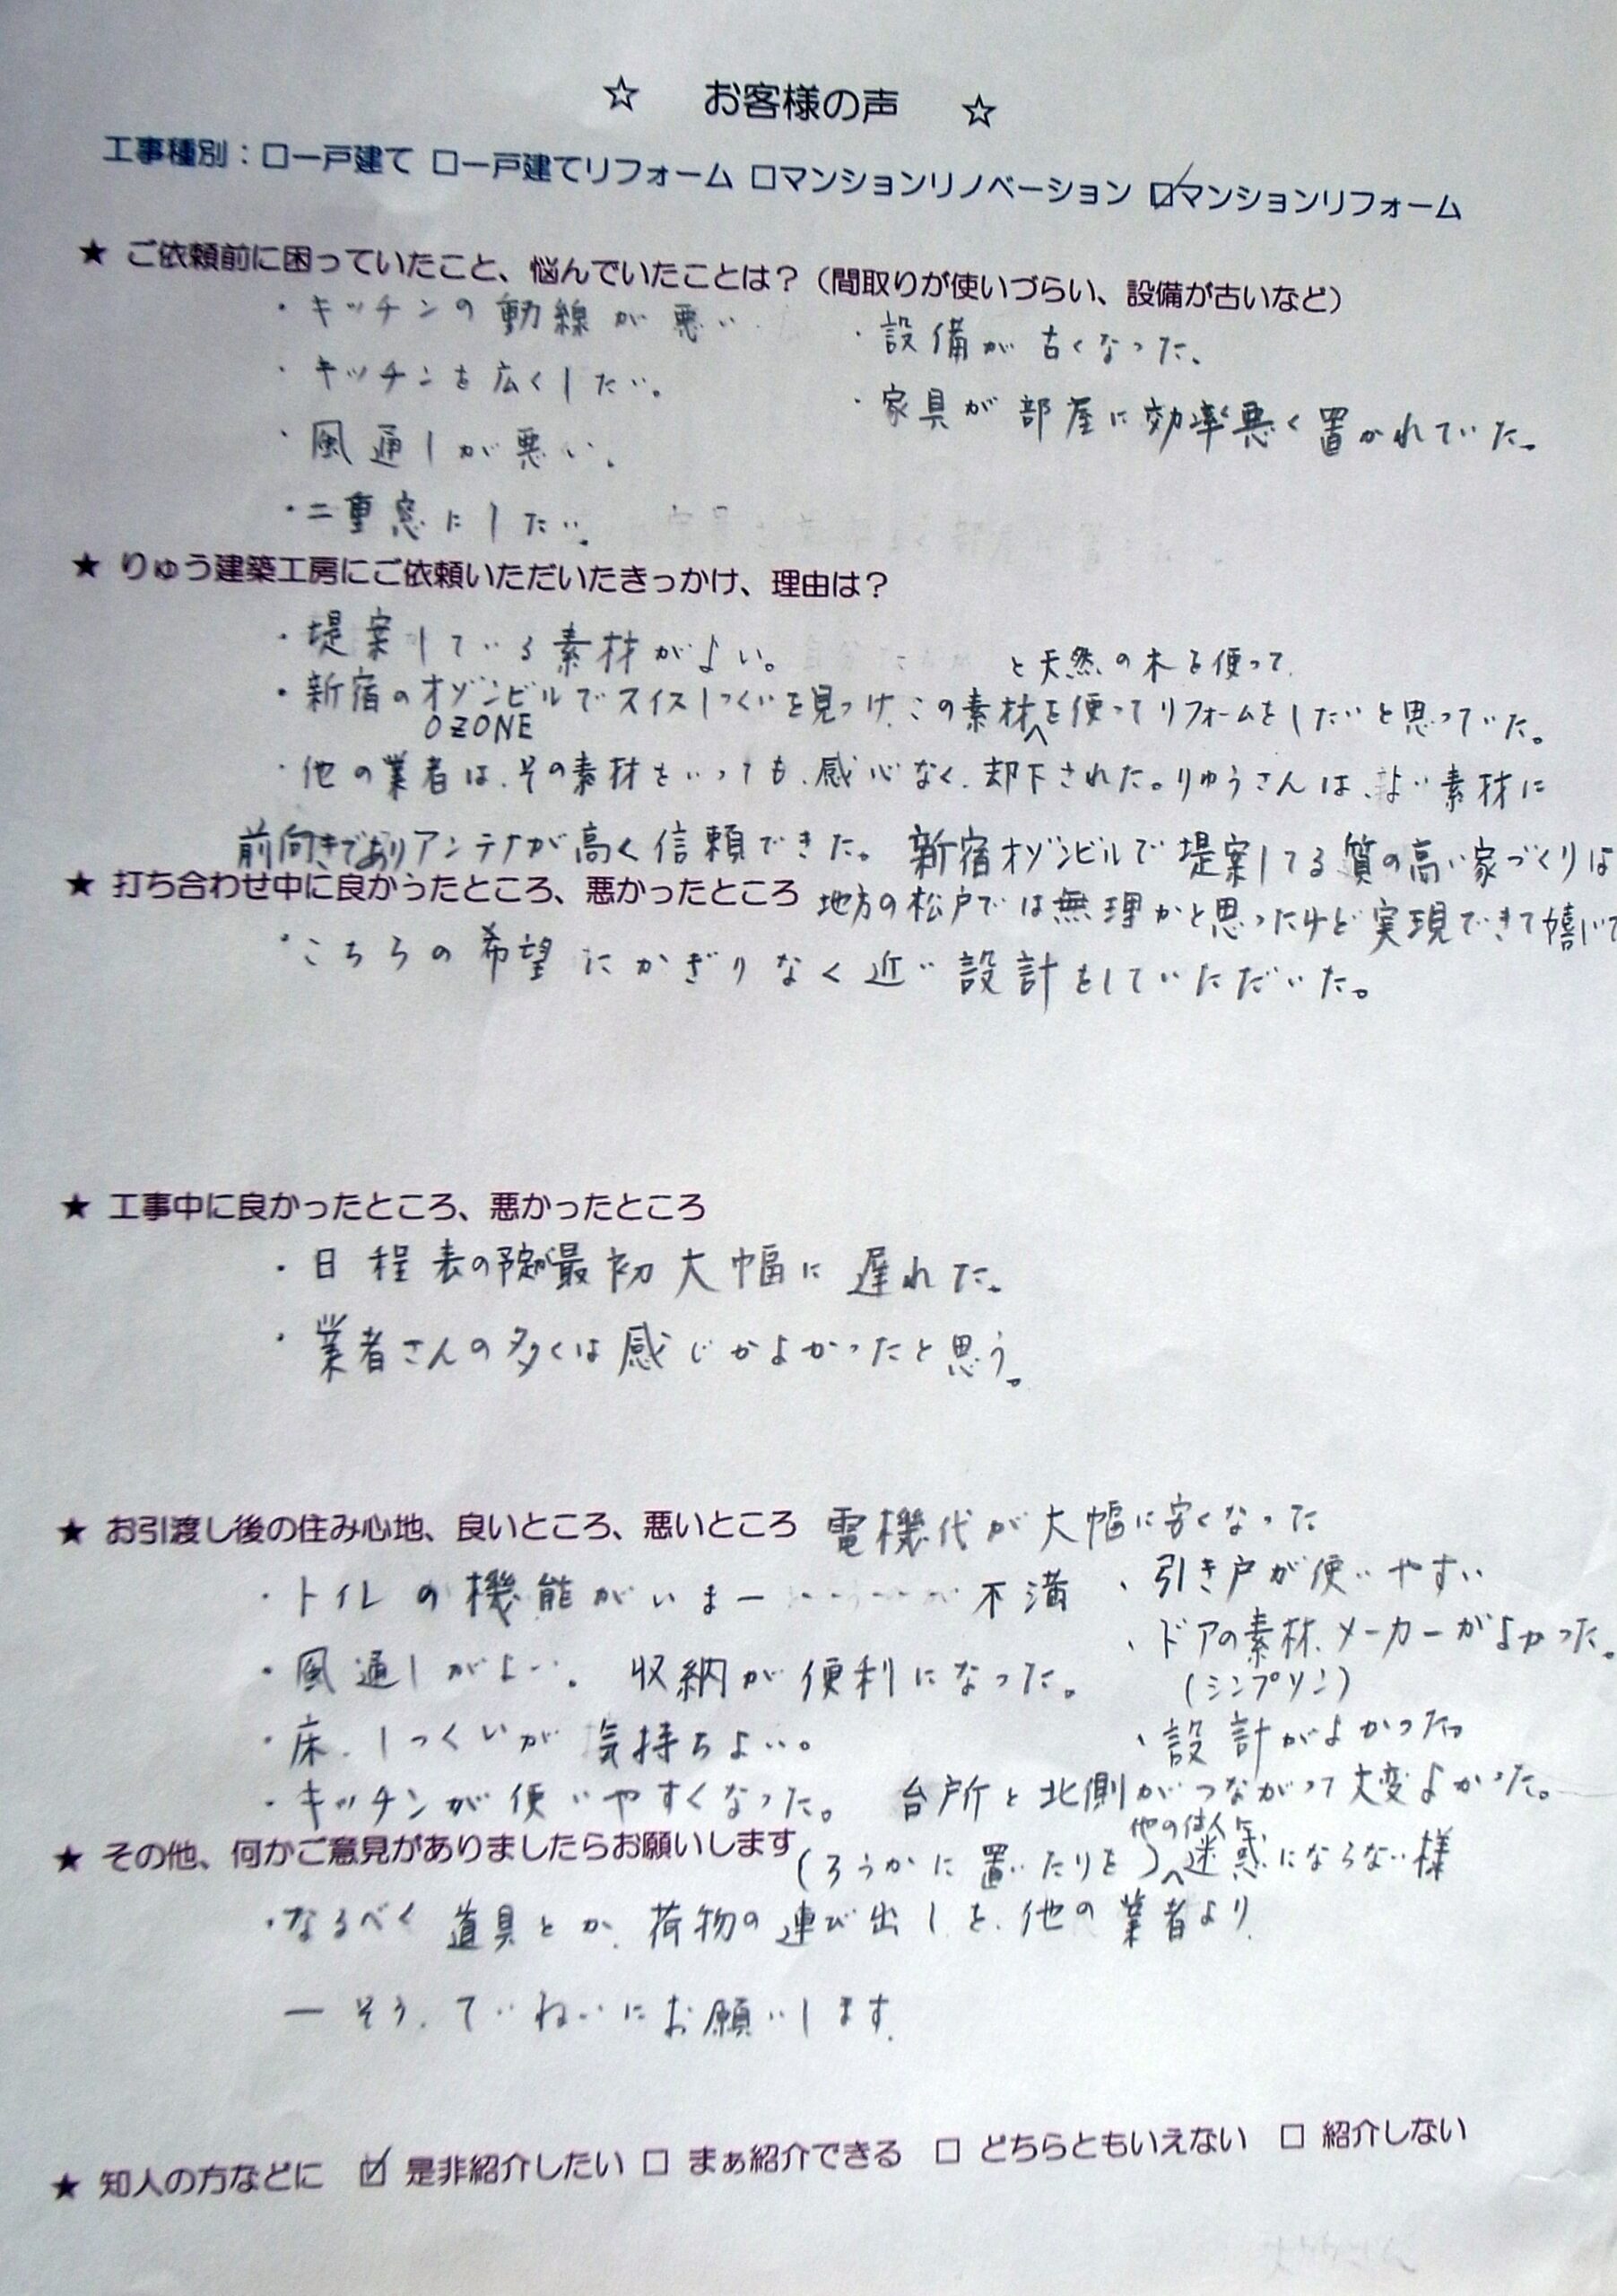 ☆ お客様の声 ☆
工事種別：□一戸建て □一戸建てリフォーム □マンションリノベーション ☑マンションリフォーム
★ ご依頼前に困っていたこと、悩んでいたことは？（間取りが使いづらい、設備が古いなど）
・キッチンの動線が悪い
・設備が古くなった、
・キッチンを広くしたい。
・家具が部屋に効率悪く置かれていた。
・風通しが悪い。
・二重窓にしたい。
★ りゅう建築工房にご依頼いただいたきっかけ、理由は？
・堤案している素材がよい。
と天然の木を使って
・新宿のオゾンビルでスイスしっくいを見つけ、この素材を使ってリフォームをしたいと思っていた。
OZONE
・他の業者は、その素材をいっても、感心なく、却下された。りゅうさんは、よい素材に
前向きでありアンテナが高く信頼できた。新宿オゾンビルで堤案してる質の高い家づくりは
★ 打ち合わせ中に良かったところ、悪かったところ
地方の松戸では無理かと思ったけど実現できて嬉しいで
・こちらの希望にかぎりなく近い設計をしていただいた。
★ 工事中に良かったところ、悪かったところ
・日程表の予定が最初大幅に遅れた。
・業者さんの多くは感じがよかったと思う。
★ お引渡し後の住み心地、良いところ、悪いところ
電機代が大幅に安くなった
・トイレの機能がいま一 不満
、引き戸が使いやすい
、ドアの素材、メーカーがよかった。
・風通しがよい。収納が便利になった。
（シンプソン）
・床、しっくいが気持ちよい。
、設計がよかった
・キッチンが使いやすくなった。 台所と北側がつながって大変よかった。
★ その他、何かご意見がありましたらお願いします
他の住人に
（ろうかに置いたりを）迷惑にならない様
・なるべく道具とか、荷物の運び出しを、他の業者より
一そう、ていねいにお願いします。
★ 知人の方などに ☑ 是非紹介したい □ まぁ紹介できる □ どちらともいえない □ 紹介しない